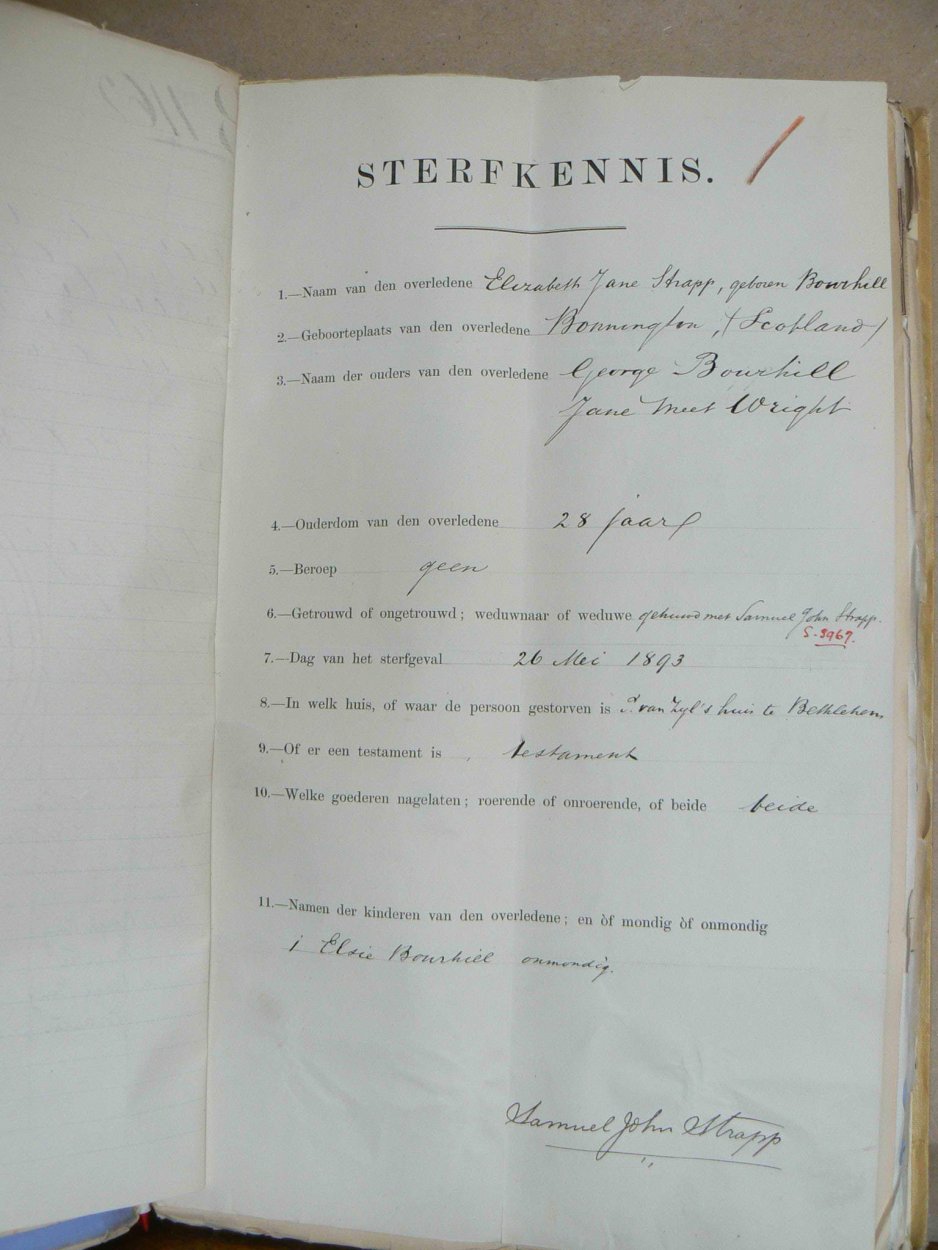 STERFKENNIS.
1.—Naam van den overledene Elizabeth Jane Strapp, geboren Bourhill
2.—Geboorteplaats van den overledene Bonnington, (Scotland)
3.—Naam der ouders van den overledene George Bourhill
Jane Wright
4.—Ouderdom van den overledene 28 jaar
5.—Beroep geen
6.—Getrouwd of ongetrouwd; weduwnaar of weduwe gehuwd met Samuel John Strapp.
S.3967.
7.—Dag van het sterfgeval 26 Mei 1893
8.—In welk huis, of waar de persoon gestorven is van Zyl's huis te Bethlehem
9.—Of er een testament is testament
10.—Welke goederen nagelaten; roerende of onroerende, of beide beide
11.—Namen der kinderen van den overledene; en òf mondig òf onmondig
1 Elsie Bourhill onmondig.
Samuel John Strapp